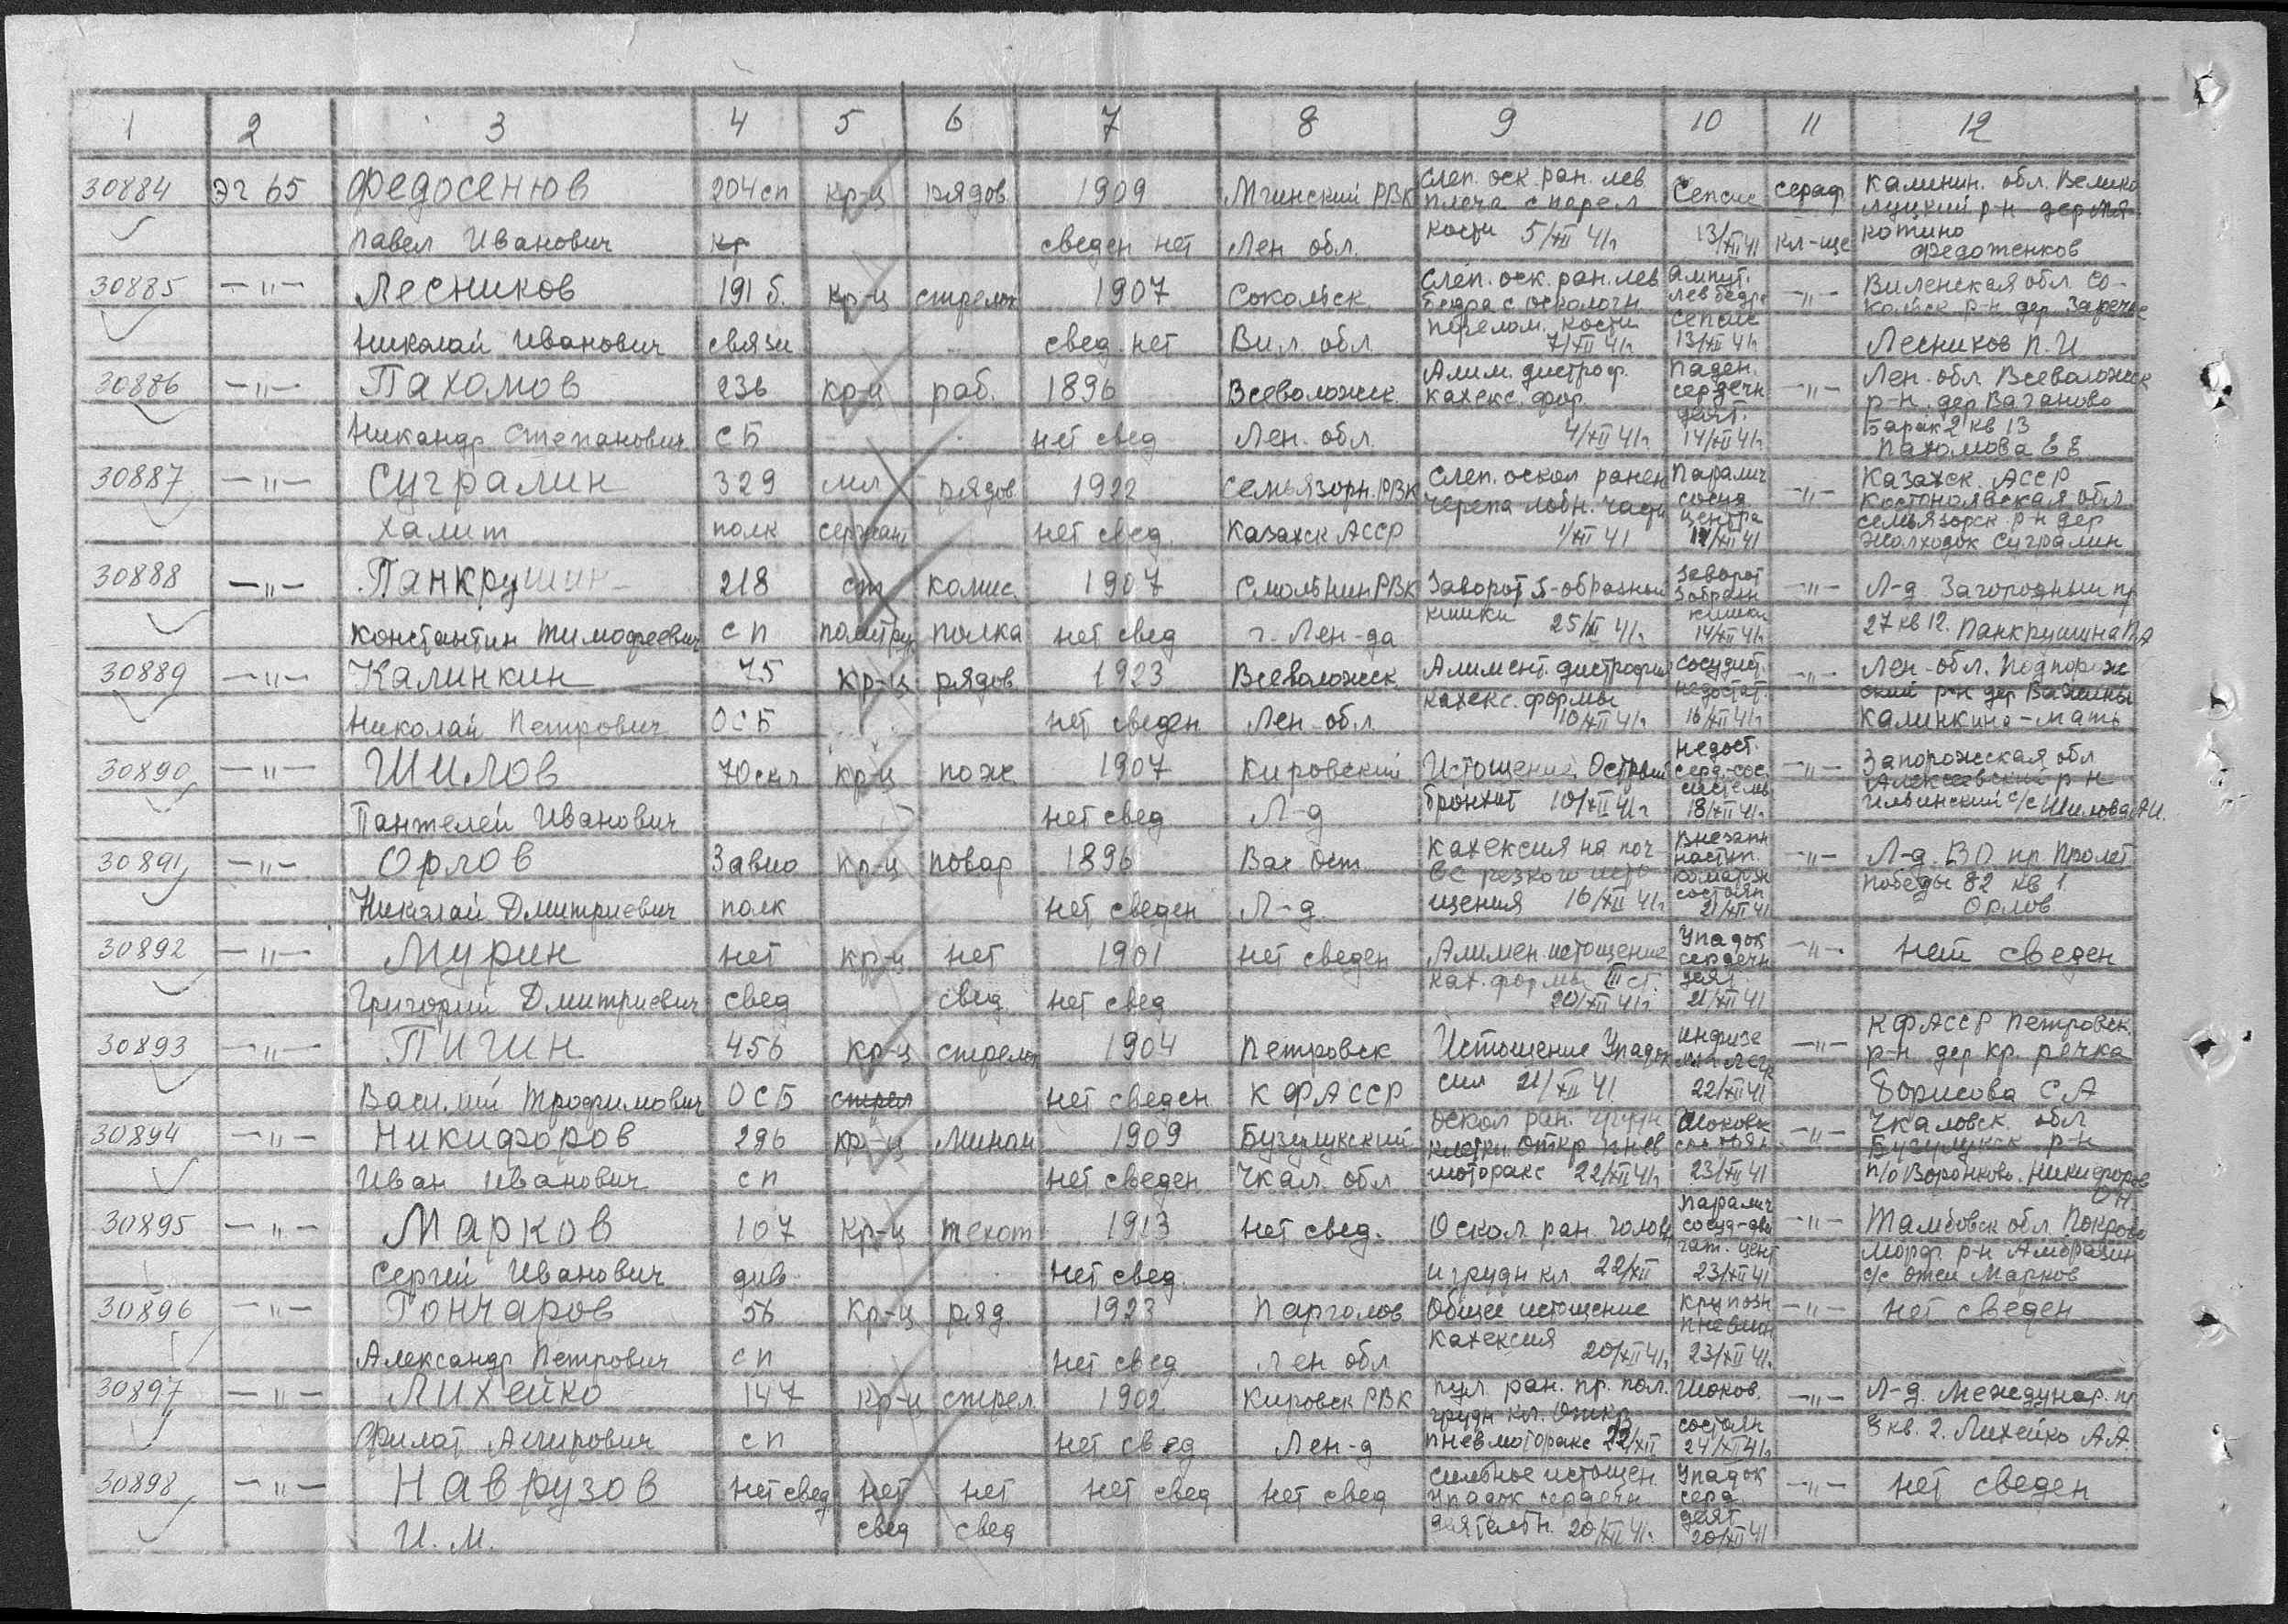 1 2 3 4 5 6 7 8 9 10 11 12
30884 ЭГ 65 Федосенюв 204 сп кр-ц рядов 1909 Мгинский РВК Слеп. оск. ран. лев плеча с парел кости 5/XII 41г Сепсис 13/XII 41 сераф кл-ще Калинин. обл. Велико луцкий р-н дер
Павел Иванович кр сведен нет Лен обл. Федоженков
30885 —"— Лесников 191 б. кр-ц стрелок 1907 Сокольск Слеп. оск. ран. лев бедра с оскологн. перелом. кости 7/XII 41г Ампут. лев бедра сепсис 13/XII 41г —"— Виленская обл. Со-кольск р-н дер Заречье
Николай Иванович связи свед нет Вил. обл. Лесников П. И
30886 —"— Пахомов 236 кр-ц раб. 1896 Всеволожск Алим. дистроф. кахекс. фор. 4/XII 41г. Паден. сердечн деят. 14/XII 41г —"— Лен. обл. Всеволожск р-н дер Ваганово
Никандр Степанович СБ нет свед Лен. обл. Барак 2 кв 13 Пахомова Е Е
30887 —"— Сугралин 329 мл рядов 1922 Семьязорн. РВК Слеп. оскол ранен черепа лобн. части 1/XII 41 Паралич сосуд центра 12/XII 41 —"— Казахск. АССР обл. семьязорск. р-н дер
Халит полк сержант нет свед. Казахск АССР Жолходок Сугралин
30888 —"— Панкрушин 218 ст комис. 1907 Смольнин РВК Заворот S-образной кишки 25/XI 41г. Заворот Sобразн кишки 14/XII 41г —"— Л-д Загородный пр
Константин Тимофеевич СП политрук полка нет свед г. Лен-да 27 кв 12. Панкрушина П.А
30889 —"— Калинкин 75 кр-ц рядов 1923 Всеволожск Алимент. дистрофия кахекс. формы 10/XII 41г Сосудист. недостат. 16/XII 41г —"— Лен-обл. Подпорож ский р-н дер Важины
Николай Петрович ОСБ нет сведен Лен-обл. Калинкина-мать
30890 —"— Шилов 70 скл кр-ц пож 1907 Кировский Истощение. Острый бронхит 10/XII 41г Недост. серд.-сос. системы 18/XII 41г. —"— Запорожская обл Алексеевский р-н Ильинский с/с Шилова А.И.
Пантелей Иванович нет свед Л-д
30891 —"— Орлов 3 авио кр-ц повар 1896 Вас Ост. Кахексия на поч ве резкого исто щения 16/XII 41г Внезапн наступ. коматозн состоян 21/XII 41 —"— Л-д. ВО пр. Пролет. победы 82 кв 1
Николай Дмитриевич полк нет сведен Л-д. Орлов
30892 —"— Мурин нет кр-ц нет 1901 нет сведен Алимен. истощение ках. формы III ст. 20/XII 41г Упадок сердечн деят 21/XII 41 —"— нет сведен
Григорий Дмитриевич свед свед нет свед
30893 —"— Пигин 456 кр-ц стрелок 1904 Петровск Истощение Упадок сил 21/XII 41 22/XII 41 —"— КФАССР Петровск. р-н дер кр. речка
Василий Трофимович ОСБ стрел нет сведен КФАССР Борисова С А
30894 —"— Никифоров 296 кр-ц Мином 1909 Бузулукский Оскол ран. грудн клетки. Откр пнев моторакс 22/XII 41г Шоковое состоян. 23/XII 41 —"— Чкаловск. обл Бугулукск р-н
Иван Иванович сп нет сведен Чкал. обл п/о Воронково. Никифоров
30895 —"— Марков 107 кр-ц техот 1913 нет свед. Оскол. ран. голов и грудн кл 22/XII Паралич сосуд-дви гат. цент 23/XII 41 —"— Тамбовск обл. Покрово морф р-н
Сергей Иванович див нет свед. с/с отец Марков
30896 —"— Гончаров 56 кр-ц ряд. 1923 Парголов Общее истощение Кахексия 20/XII 41г Крупозн пневмон 23/XII 41г. —"— нет сведен
Александр Петрович сп нет свед Лен обл
30897 —"— Лихейко 147 кр-ц стрел. 1902 Кировск РВК пул. ран. пр. пол. грудн кл. Откр. пневмоторакс 22/XII Шоков. состоян 24/XII 41г —"— Л-д. Междунар. пр
Филат сп нет свед Лен-д 3 кв. 2. Лихейко А А.
30898 —"— Наврузов нет свед нет нет нет свед нет свед Сильное истощен. Упадок сердечн деятельн. 20/XII 41г. Упадок серд. деят 20/XII 41 —"— нет сведен
И. М. свед свед